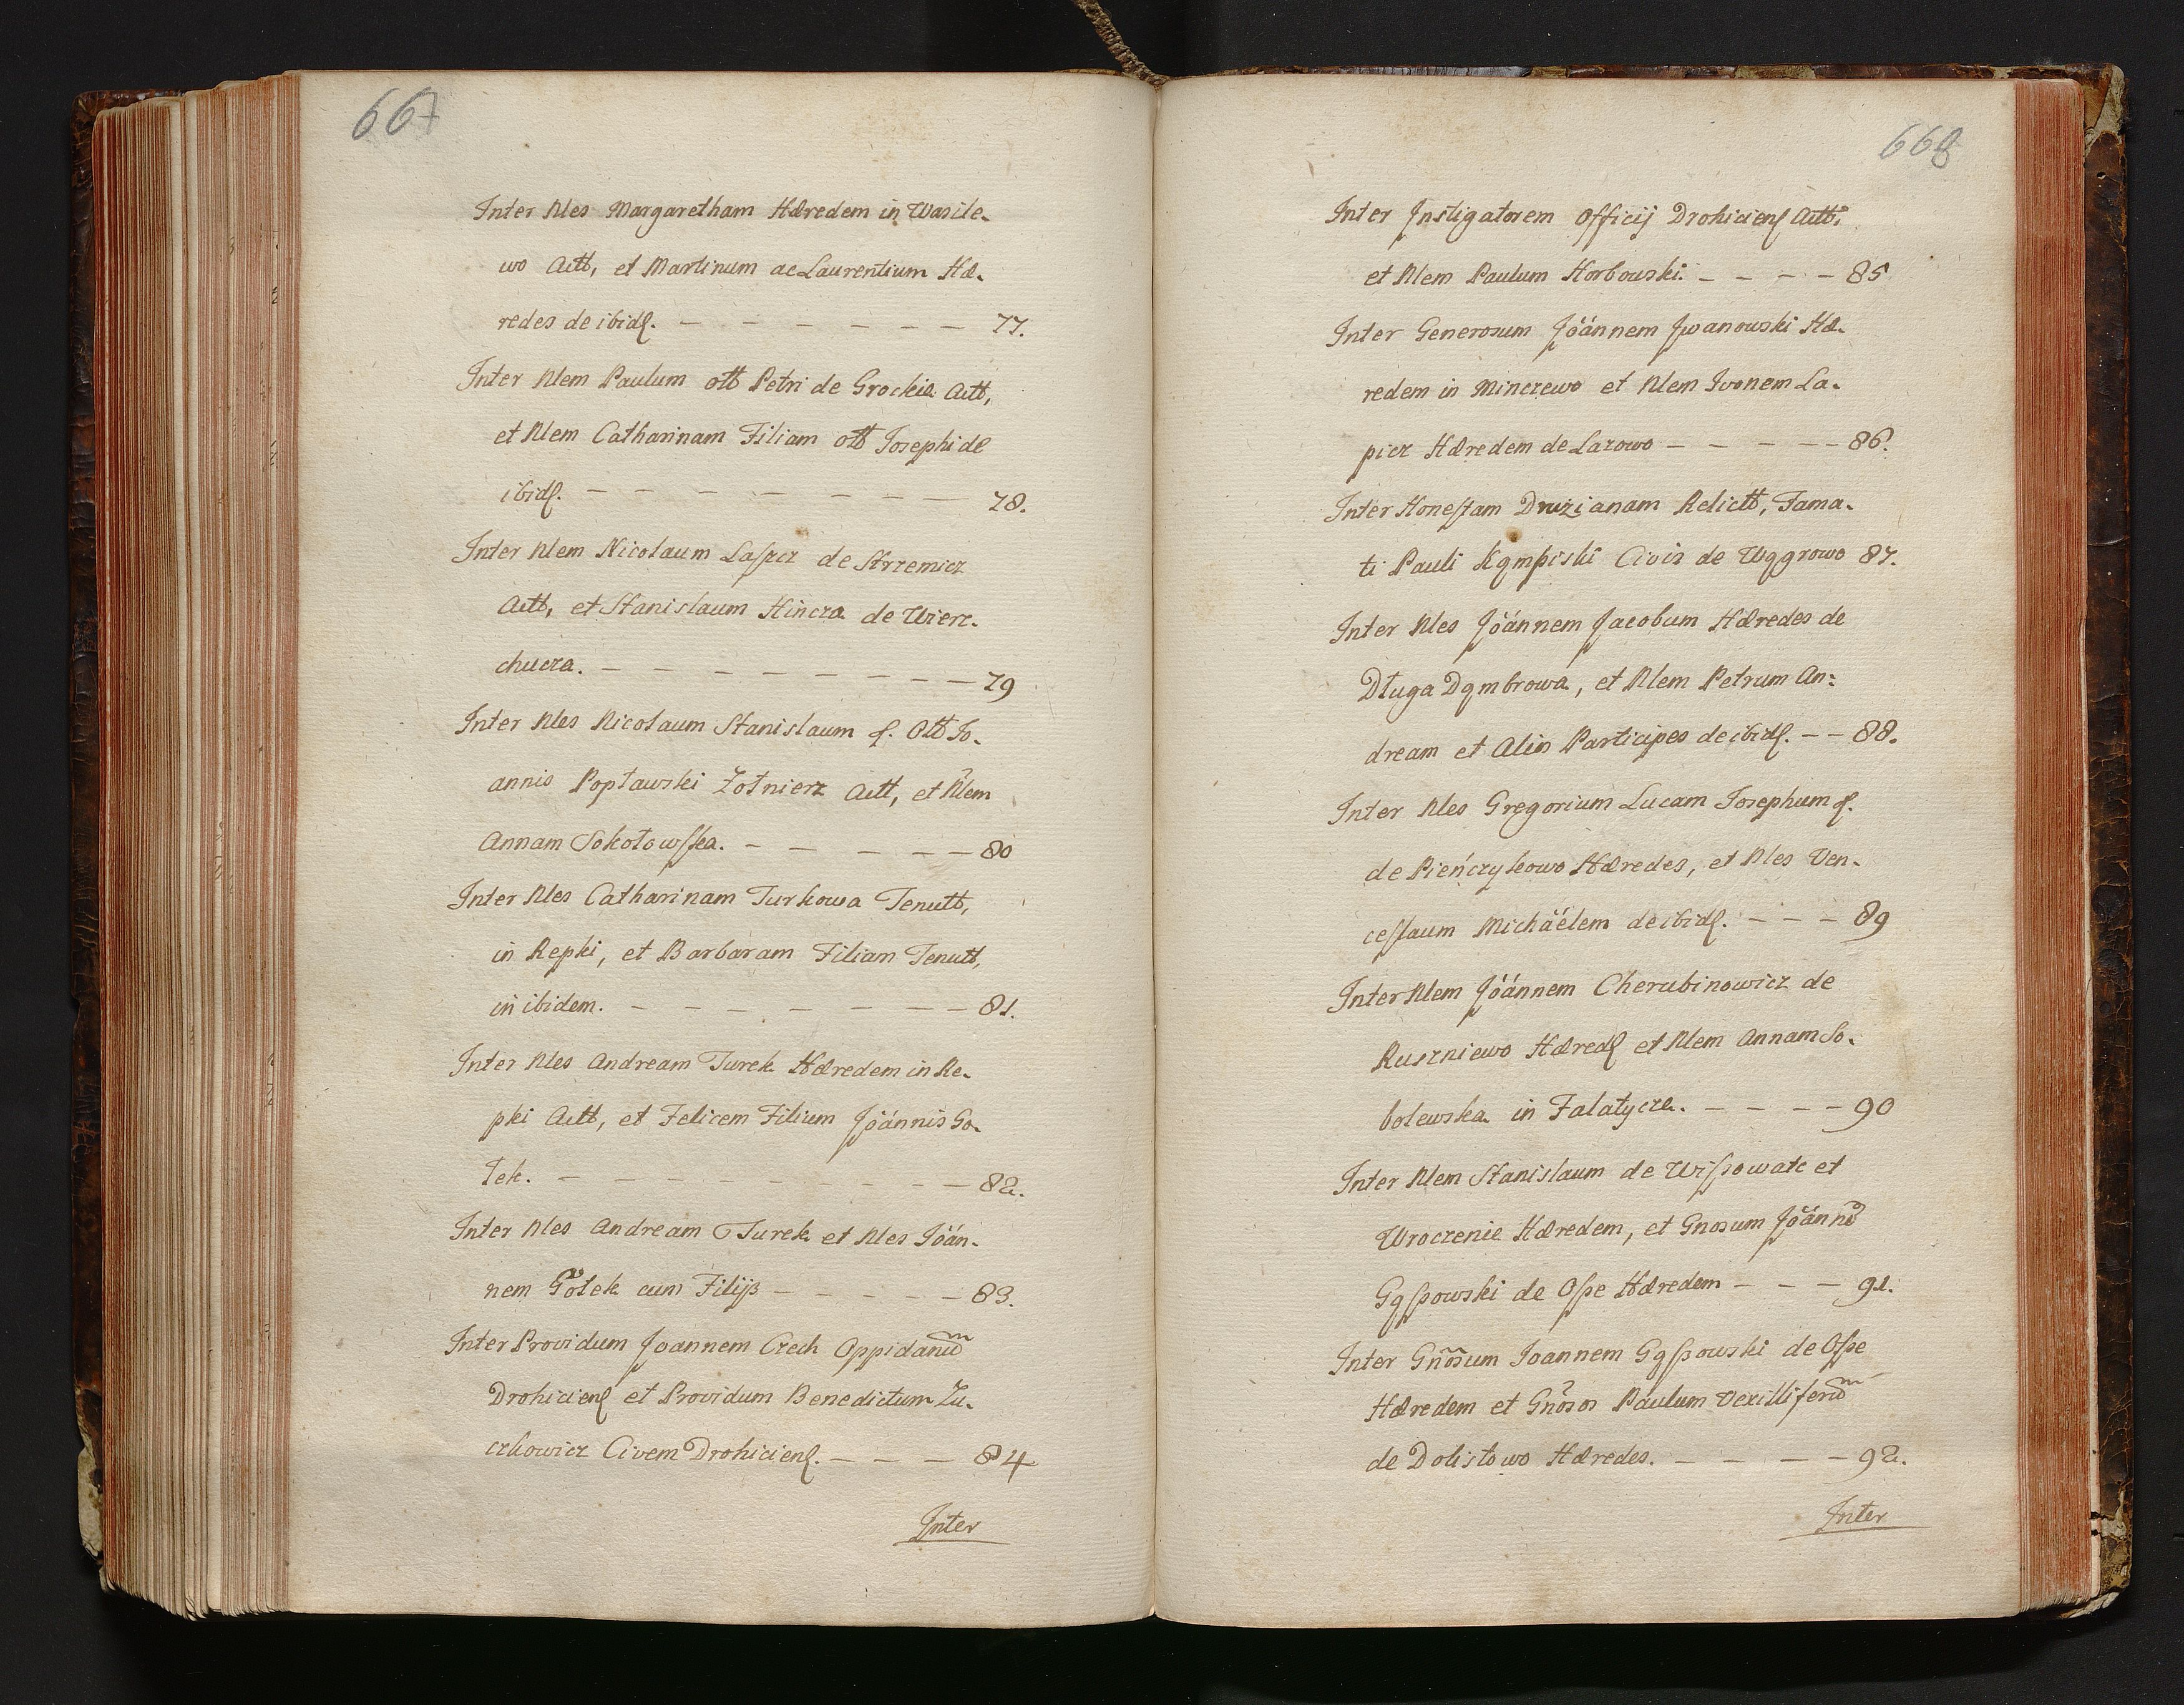 667
Inter Nles Margaretham Hæredem in Wasile-
wo Actt, et Martinum ac Laurentium Hæ-
redes de ibidſ. — — — — — — 77.
Inter Nlem Paulum ott Petri de Grockie Actt,
et Nlem Catharinam Filiam ott Josephi de
ibidſ. — — — — — — — 78.
Inter Nlem Nicolaum Laſzcz de Strzemicz
Actt, et Stanislaum Hincza de Wierz-
chucza. — — — — — — — 79
Inter Nles Nicolaum Stanislaum ſ. Ott Jo-
annis Popławski Żołnierz Actt, et Nlem
Annam Sokołowſka. — — — — — 80
Inter Nles Catharinam Turkowa Tenutt,
in Repki, et Barbaram Filiam Tenutt,
in ibidem. — — — — — — — 81.
Inter Nles Andream Turek Hæredem in Re-
pki Actt, et Felicem Filium Joannis Go-
łek. — — — — — — — — 82.
Inter Nles Andream Turek et Nles Joan-
nem Gołek cum Filijs — — — — — 83.
Inter Providum Joannem Czech Oppidanũ
Drohiciensſ et Providum Benedictum Zu-
czkowicz Civem Drohiciensſ. — — — 84
Inter
668
Inter Jnstigatorem Officij Drohiciensſ Actt,
et Nlem Paulum Horbowski. — — — — 85
Inter Generosum Joannem Jwanowski Hæ-
redem in Minczewo et Nlem Jvonem Ła-
picz Hæredem de Lazowo — — — — — 86.
Inter Honeſtam Druzianam Relictt, Fama-
ti Pauli Kąmpiski Civis de Wągrowo 87.
Inter Nles Joannem Jacobum Hæredes de
Długa Dąmbrowa, et Nlem Petrum An-
dream et Alios Participes de ibidſ. — — 88.
Inter Nles Gregorium Lucam Josephum ſ.
de Pieńczykowo Hæredes, et Nles Ven-
ceſlaum Michaelem de ibidſ. — — — 89
Inter Nlem Joannem Cherubinowicz de
Ruszniewo Hæredſ et Nlem Annam So-
bolewska in Falatycze. — — — — 90
Inter Nlem Stanislaum de Wiſzowate et
Wroczenie Hæredem, et Gnosum Joannẽ
Gąſzowski de Oſze Hæredem — — — 91.
Inter Gnosum Joannem Gąſzowski de Oſze
Hæredem et Gnosos Paulum Vexilliferũ
de Dolistowo Hæredes. — — — — 92.
Inter